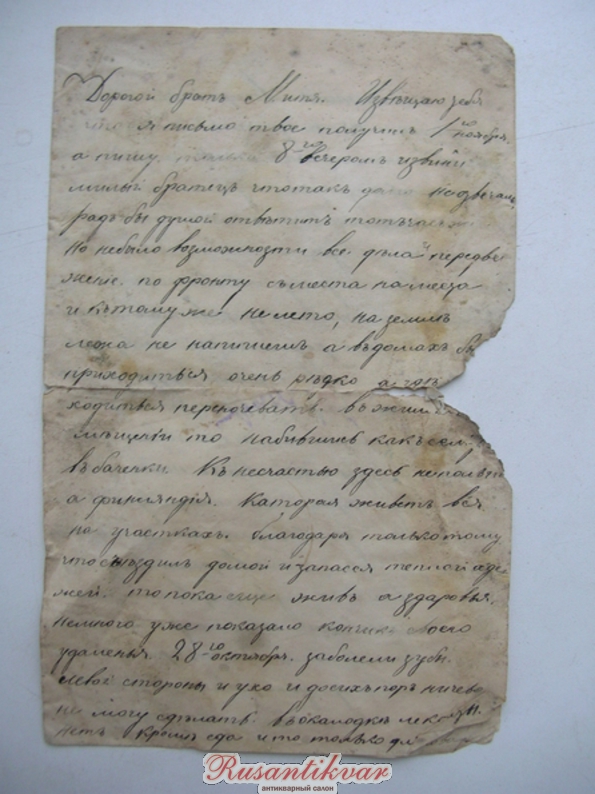 Дорогой братъ Митя. Извѣщаю тебя
что я письмо твое получилъ 1го ноября.
а пишу только 8го вечеромъ извини
милый братецъ чтотакъ
радъ бы душой отвѣтитъ
но небыло возможности все дѣлай передви
жение. по фронту съместа наместа
и къ томуже нелето, наземлѣ
лежа не напишешь авъдомахъ бы
приходиться очень рѣдко а гдѣ
ходиться переночевать. въжилы
мѣщении то набившись какъсел
въбаченки. Къ несчастью здесь непольш
а финляндия. Каторая живетъ вся
на участкахъ. благодаря толькотому
чтосъѣздилъ домой изапасся теплой оде
жей. топока еще живъ а здоровья.
немного уже показало кончикъ своего
удаленья. 28го октября. заболели зубы.
левой стороны и ухо и досихъпоръ ничево
не могу сдѣлать. въоколодкѣ
нетъ кромѣ ода и тотолько
Rusantikvar
антикварный салон